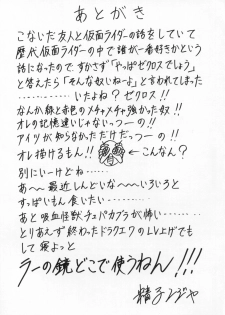 あとがき
こないだ友人と仮面ライダーの話をしていて
歴代仮面ライダーの中で誰が一番好きかという
話になったので、すかさず「やっぱゼクロスでしょう」
と答えたら「そんな奴いねーよ」と言われてしまった
………いたよね?ゼクロス!!
なんか緑と赤色のメチャメチャ強かった奴!!
オレの記憶違いじゃないっつーの!!
アイツが知らなかっただけだっつーの!!
オレ描けるもん!! ←こんなん?
別にいーけどね…
あ〜〜最近しんどいな〜〜〜いろいろと
すっぱいもん食いたい………
あと吸血怪獣チュパカブラが怖い………
とりあえず終わったドラクエⅥのLV上げでも
して寝よっと
ラーの鏡どこで使うねん!!!